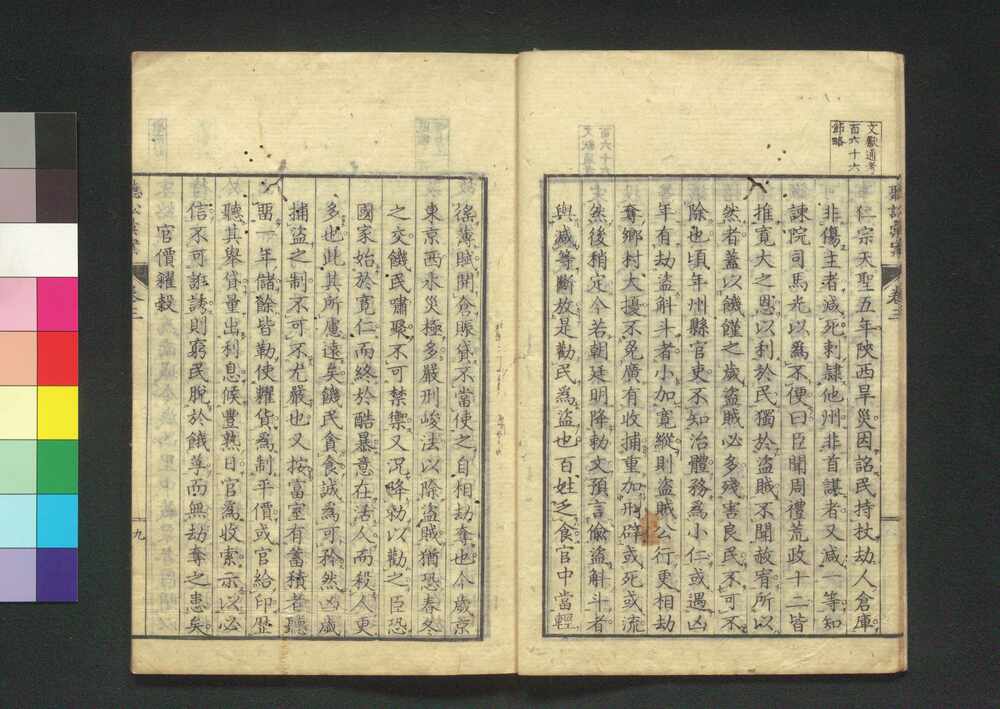 文獻通考
百六十六
節略
仁宗天聖五年陜西旱災因詔民持杖劫人倉庫
非傷主者減死刺隷他州非首謀者又減一等知
諌院司馬光以爲不便曰臣聞周禮荒政十二皆
推寛大之恩以利於民獨於盗賊不聞故宥所以
然者蓋以饑饉之歳盗賊必多殘害良民不可不
除也頃年州縣官吏不知治體務爲小仁或遇凶
年有劫盗斛斗者小加寛縱則盗賊公行更相劫
奪鄉村大擾不免廣有收捕重加刑辟或死或流
然後稍定今若朝廷明降勅文預言偸盗斛斗者
與減等斷放是勸民爲盗也百姓乏食官中當輕
徭薄賦開倉賑貸不當使之自相劫奪也今歳京
東京西水災極多嚴刑峻法以除盗賊猶恐春冬
之交饑民嘯聚不可禁禦又況降勅以勸之臣恐
國家始於寛仁而終於酷暴意在活人而殺人更
多也此其所慮遠矣饑民貪食誠爲可矜然凶歳
捕盗之制不可不尤嚴也又按富室有蓄積者聽
畱一年儲餘皆勒使糶貨爲制平價或官給印歴
聽其舉貸量出利息候豊熟日官爲收索示以必
信不可誑誘則窮民脱於餓莩而無劫奪之患矣
官價糴穀
卷三
九